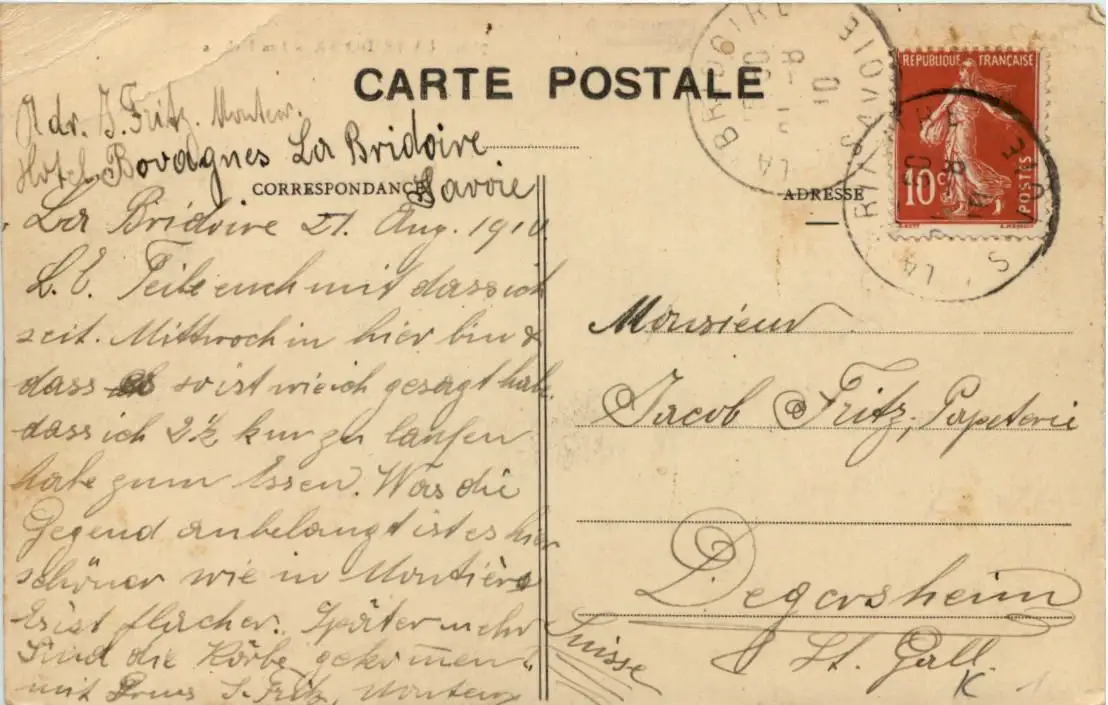 CARTE POSTALE
Adr. J. Fritz. Monteur.
Hotel Bovagnes La Bridoire.
Savoie
CORRESPONDANCE
ADRESSE
La Bridoire 21. Aug. 1910.
L. E. Teile euch mit dass ich
seit. Mittwoch in hier bin &
dass es so ist wie ich gesagt habe.
dass ich 2½ km zu laufen
habe zum Essen. Was die
Gegend anbelangt ist es hier
schöner wie in Moutiers
Es ist flacher. Später mehr
Sind die Körbe gekommen
mit Gruss J. Fritz, Monteur
RÉPUBLIQUE FRANÇAISE
10c
POSTES
LA BRIDOIRE
SAVOIE
LA BRIDOIRE
SAVOIE
Monsieur
Jacob Fritz, Papeterie
Degersheim
Ct. St. Gall.
Suisse